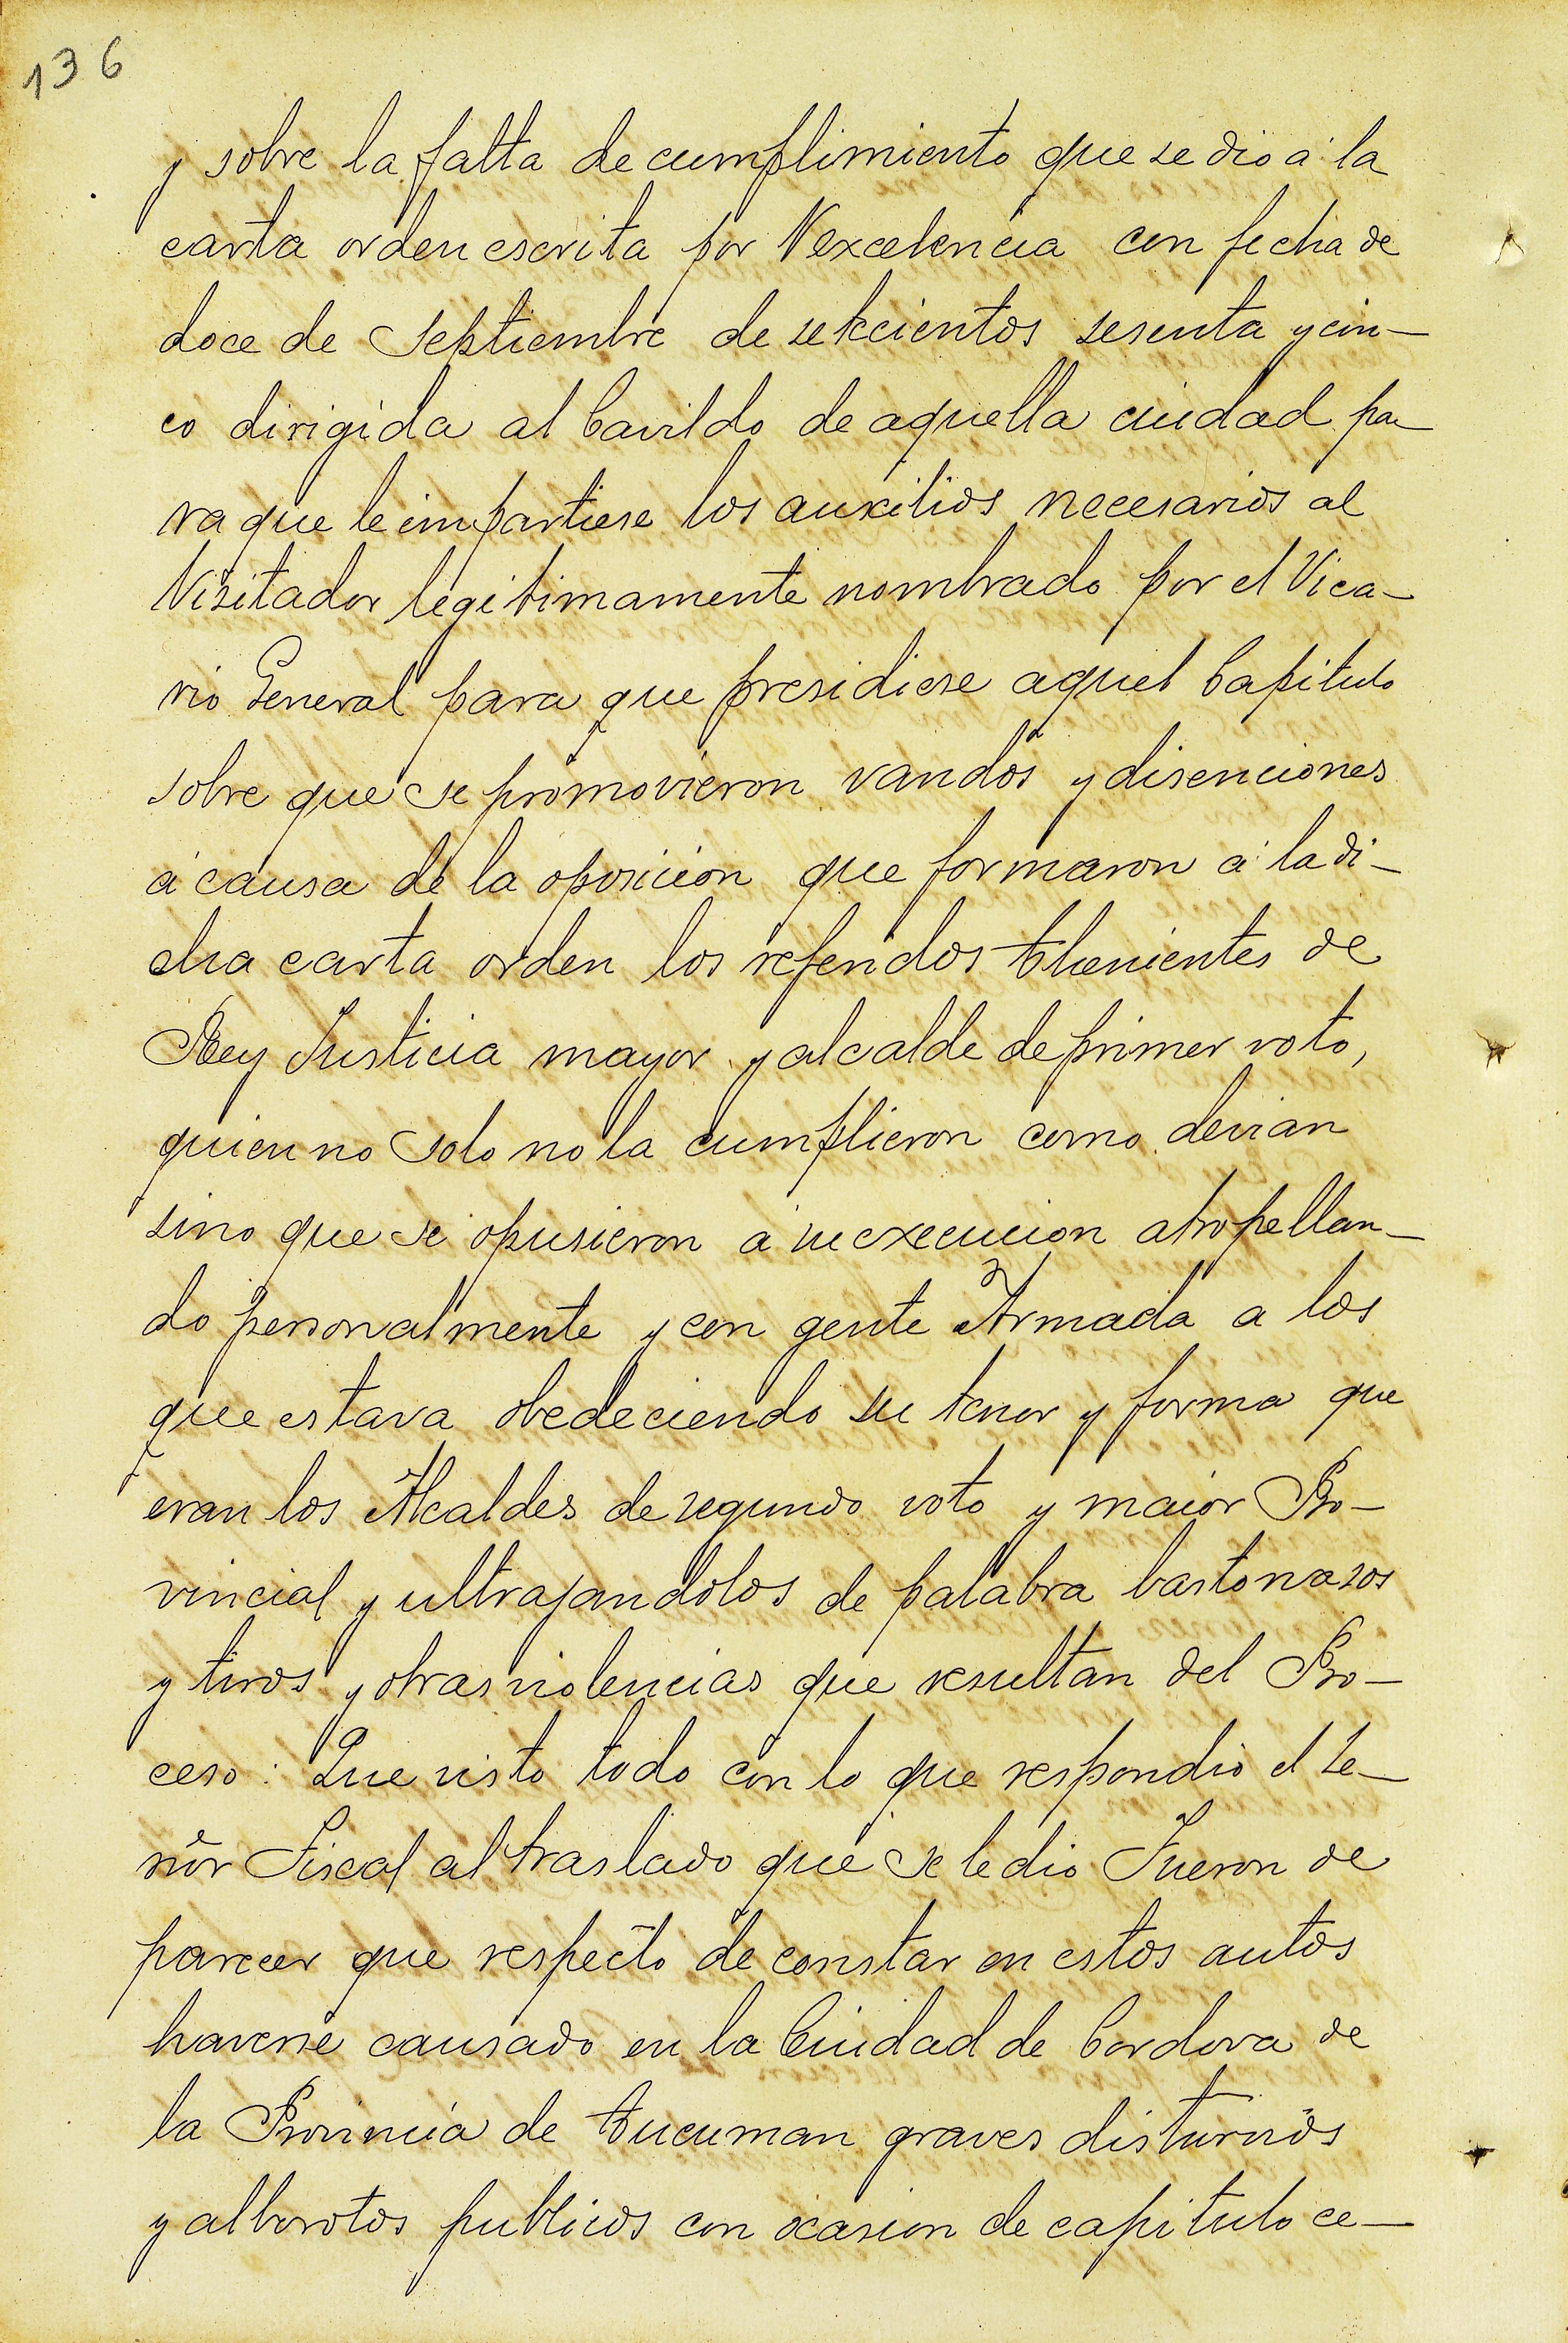 136
y sobre la falta de cumplimiento que se dio a la
carta orden escrita por Vexcelencia con fecha de
doce de Septiembre de setecientos sesenta y cin-
co dirigida al Cavildo de aquella ciudad pa-
ra que le impartiese los auxilios necesarios al
Visitador legitimamente nombrado por el Vica-
rio General para que presidiese aquel Capitulo
sobre que se promovieron vandos y disenciones
á causa de la oposicion que formaron á la di-
cha carta orden los referidos thenientes de
Rey Justicia mayor y alcalde de primer voto,
quien no solo no la cumplieron como devian
sino que se opusieron á su execucion atropellan-
do personalmente y con gente Armada a los
que estava obedeciendo su tenor y forma que
eran los Alcaldes de segundo voto y maior Pro-
vincial y ultrajandolos de palabra bastonasos
y tiros y otras violencias que resultan del Pro-
ceso: Que visto todo con lo que respondio el Se-
ñor Fiscal al traslado que se le dio Fueron de
parecer que respecto de constar en estos autos
haverse causado en la Ciudad de Cordova de
la Provincia de tucuman graves disturvios
y alborotos publicos con ocasion de capitulo ce-